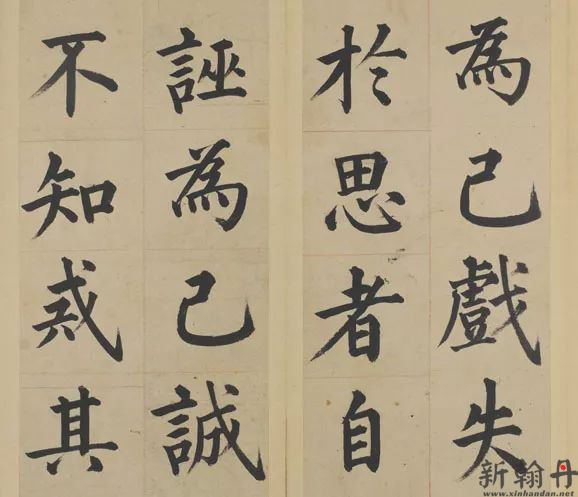 為己戲失
於思者自
誣為己誠
不知戒其
新翰丹
www.xinhandan.net